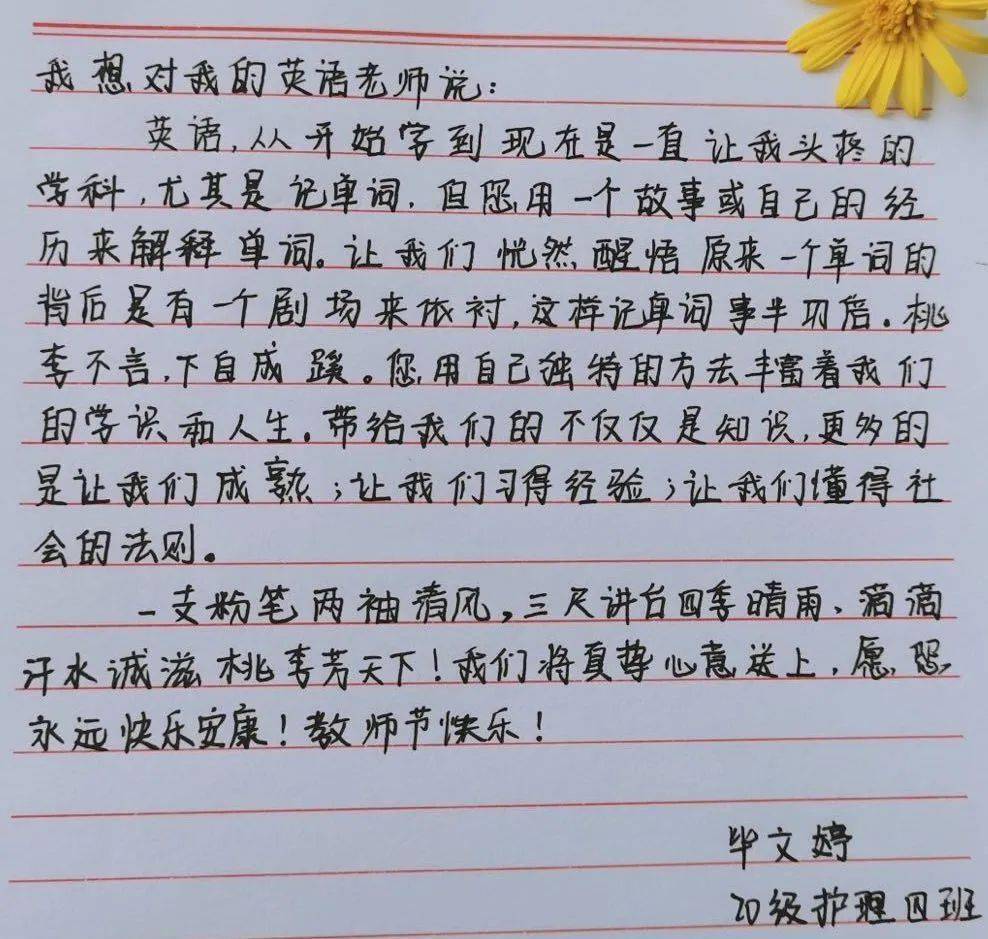 我想对我的英语老师说:
英语,从开始学到现在是一直让我头疼的
学科,尤其是记单词.但您用一个故事或自己的经
历来解释单词。让我们恍然醒悟原来一个单词的
背后是有一个剧场来依衬,这样记单词事半功倍.桃
李不言,下自成蹊。您用自己独特的方法丰富着我们
的学识和人生.带给我们的不仅仅是知识,更多的
是让我们成熟;让我们习得经验;让我们懂得社
会的法则。
一支粉笔两袖清风,三尺讲台四季晴雨、滴滴
汗水诚滋桃李芳天下!我们将真挚心意送上,愿您
永远快乐安康!教师节快乐!
毕文婷
20级护理四班